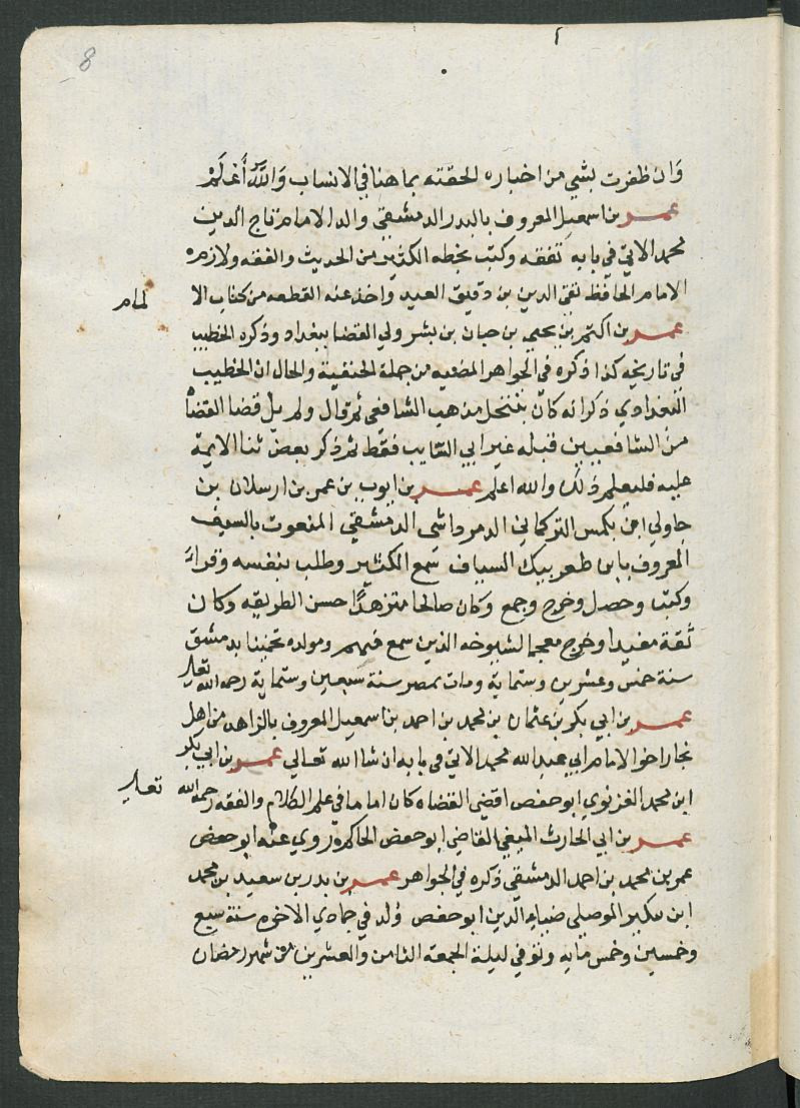 8
وان ظفرت بشي من اخباره الحقته بما هنا في الانساب والله أعلم
عمر بن اسمعيل المعروف بالبدر الدمشقي والد الامام تاج الدين
محمد الاتي في بابه تفقه وكتب بخطه الكثير من الحديث والفقه ولازم
الامام الحافظ تقي الدين بن دقيق العيد واخذ عنه القطعه من كتاب الا
لمام
عمر بن اكثم بن يحيي بن حبان بن بشر ولي القضا ببغداد وذكره الخطيب
في تاريخه كذا ذكره في الجواهر المضيه من جملة الحنفية والحال ان الخطيب
البغدادي ذكر انه كان ينتحل مذهب الشافعي ثم قال ولم يل قضا القضاة
من الشافعيين قبله غير ابي السايب فقط ثم ذكر بعض ثنا الايمة
عليه فليعلم ذلك والله اعلم عمر بن ايوب بن عمر بن ارسلان بن
جاولي ابن بكمس التركماني الدمرداشي الدمشقي المنعوت بالسيف
المعروف بابن طغربيك السياف سمع الكثير وطلب بنفسه وقراء
وكتب وحصل وخرج وجمع وكان صالحا متزهدا حسن الطريقه وكان
ثقة مفيدا وخرج معجما لشيوخه الذين سمع منهم ومولده تخمينا بدمشق
سنة خمس وعشرين وستماية ومات بمصر سنة سبعين وستماية رحمه الله تعالى
عمر بن ابي بكر بن عثمان بن محمد بن احمد بن اسمعيل المعروف بالزاهد من اهل
بخارا اخو الامام ابي عبد الله محمد الاتي في بابه ان شا الله تعالي عمر بن ابي بكر
ابن محمد الغزنوي ابو حفص اقضي القضاه كان اماما في علم الكلام والفقه رحمه الله
تعالى
عمر بن ابي الحارث المبيغي القاضي ابو حفص الحاكم روي عنه ابو حفص
عمر بن محمد بن احمد الدمشقي ذكره في الجواهر عمر بن بدر بن سعيد بن محمد
ابن بكير الموصلي ضياء الدين ابو حفص ولد في جمادي الاخره سنة سبع
وخمسين وخمس مايه وتوفي ليلة الجمعه الثامن والعشرين من شهر رمضان